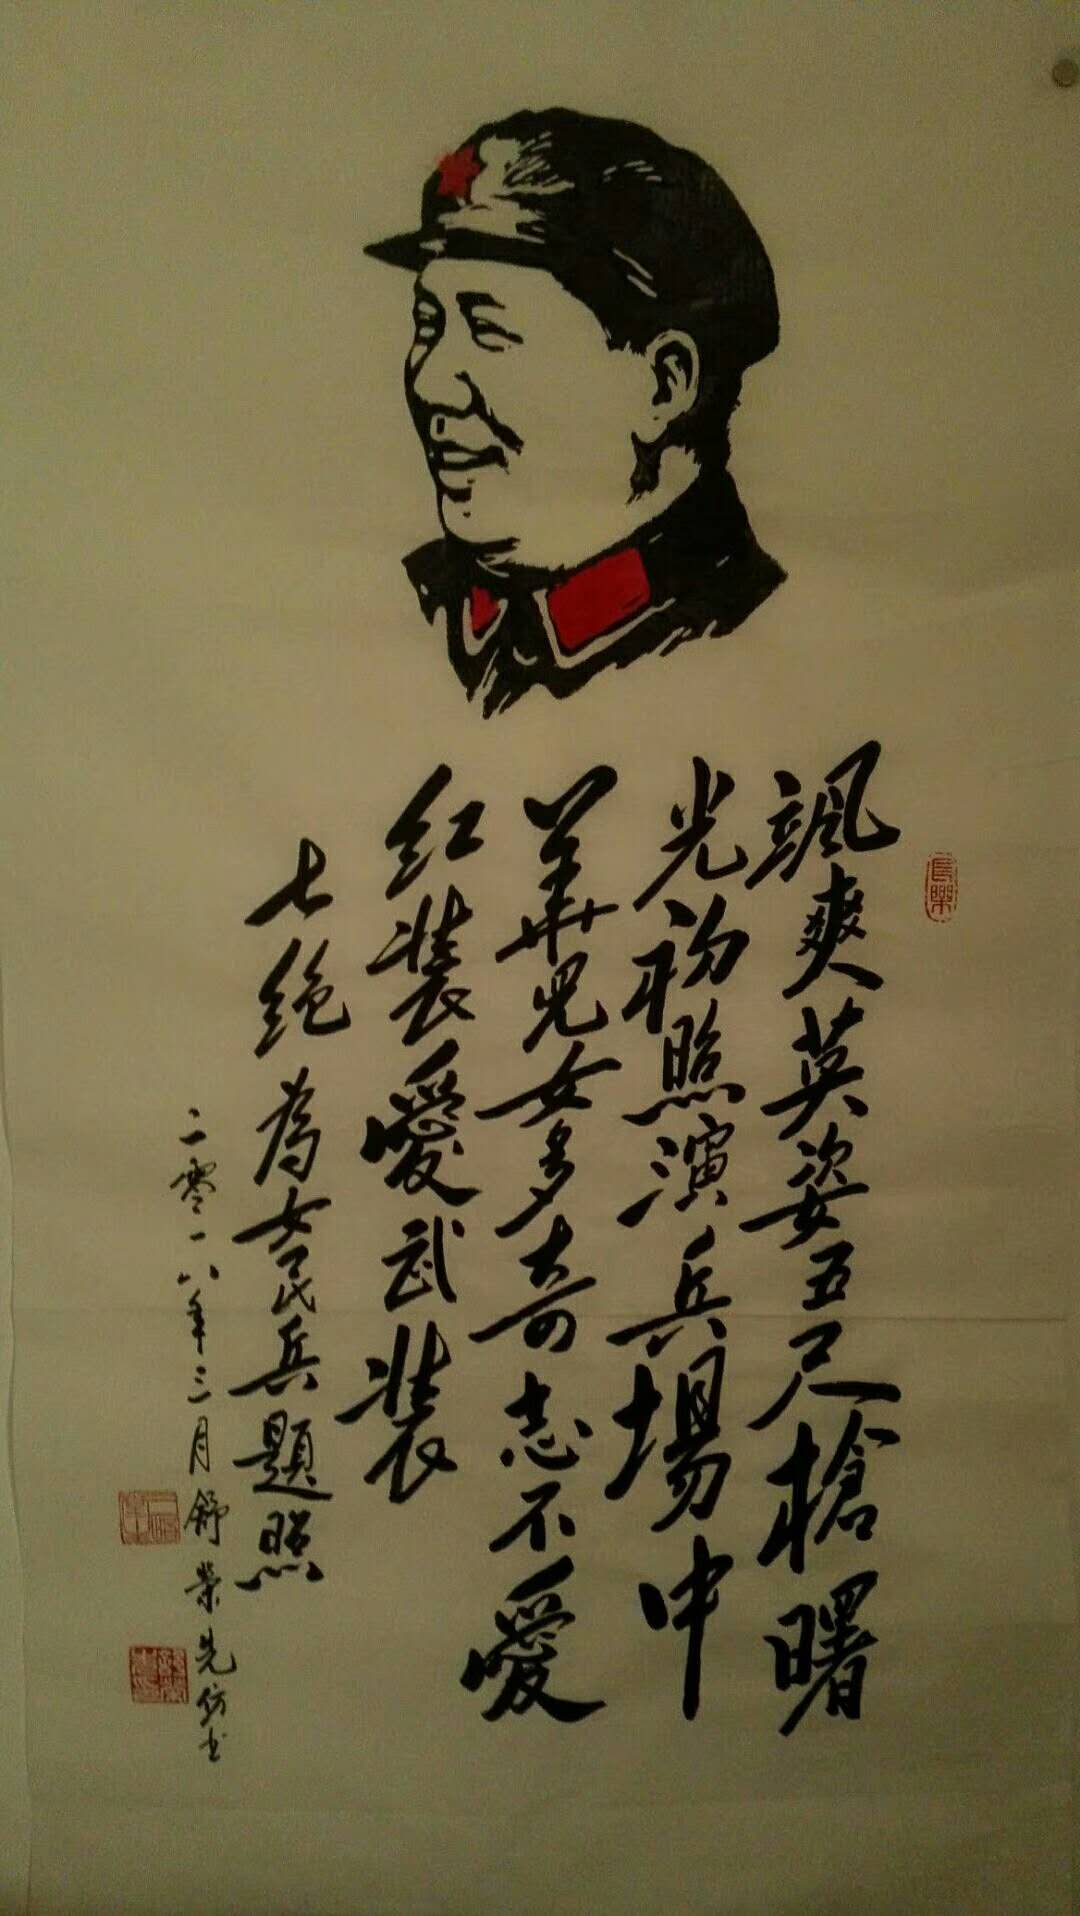 颯爽英姿五尺槍曙
光初照演兵場中
華兒女多奇志不愛
红裝愛武裝
七絕為女民兵題照
二零一八年三月舒荣先仿书
長樂